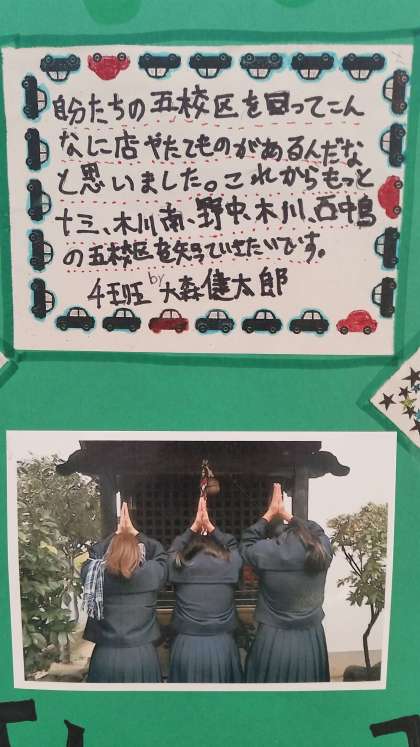 自分たちの五校区を回ってこん
なに店やたてものがあるんだな
と思いました。これからもっと
十三、木川南、野中、木川、西中島
の五校区を知っていきたいです。
4班 by 大森健太郎